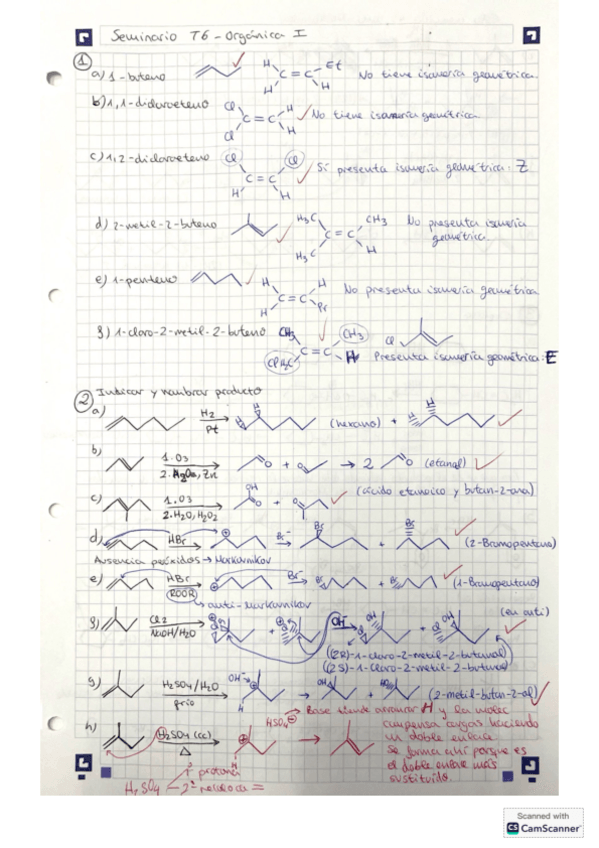 Seminario T6 - Orgánica I
1
a) 1-buteno H H C = C Et H No tiene isomería geométrica.
b) 1,1-dicloroeteno Cl Cl C = C H H No tiene isomería geométrica.
c) 1,2-dicloroeteno Cl H C = C Cl H Sí presenta isomería geométrica. Z
d) 2-metil-2-buteno H3C H3C C = C CH3 H No presenta isomería
geométrica.
e) 1-penteno H H C = C Pr No presenta isomería geométrica
f) 1-cloro-2-metil-2-buteno CH3 ClH2C C = C CH3 H Cl Presenta isomería geométrica: E
2 Indicar y nombrar producto
a) H2 Pt H H (hexano) + H H
b) 1. O3 2. Zn O + O → 2 O (etanal)
c) 1. O3 2. H2O, H2O2 OH O + O (ácido etanoico y butan-2-ona)
d) HBr Br⁻ Br + Br (2-Bromopentano)
Ausencia peróxidos → Markovnikov
e) HBr ROOR Br⁻ Br + Br (1-Bromopentano)
anti-Markovnikov
f) Cl2 NaOH/H2O + OH⁻ OH + OH (en anti)
(2R)-1-cloro-2-metil-2-butanol
(2S)-1-cloro-2-metil-2-butanol
g) H2SO4/H2O frío OH⁻ H OH + HO (2-metil-butan-2-ol)
h) H2SO4 (cc) △ HSO4⁻ Base tiende arrancar H y la molec
compensa cargas haciendo
un doble enlace
Se forma ahí porque es
el doble enlace más
sustituido.
1º protona
H2SO4 2º =
Scanned with
CS CamScanner